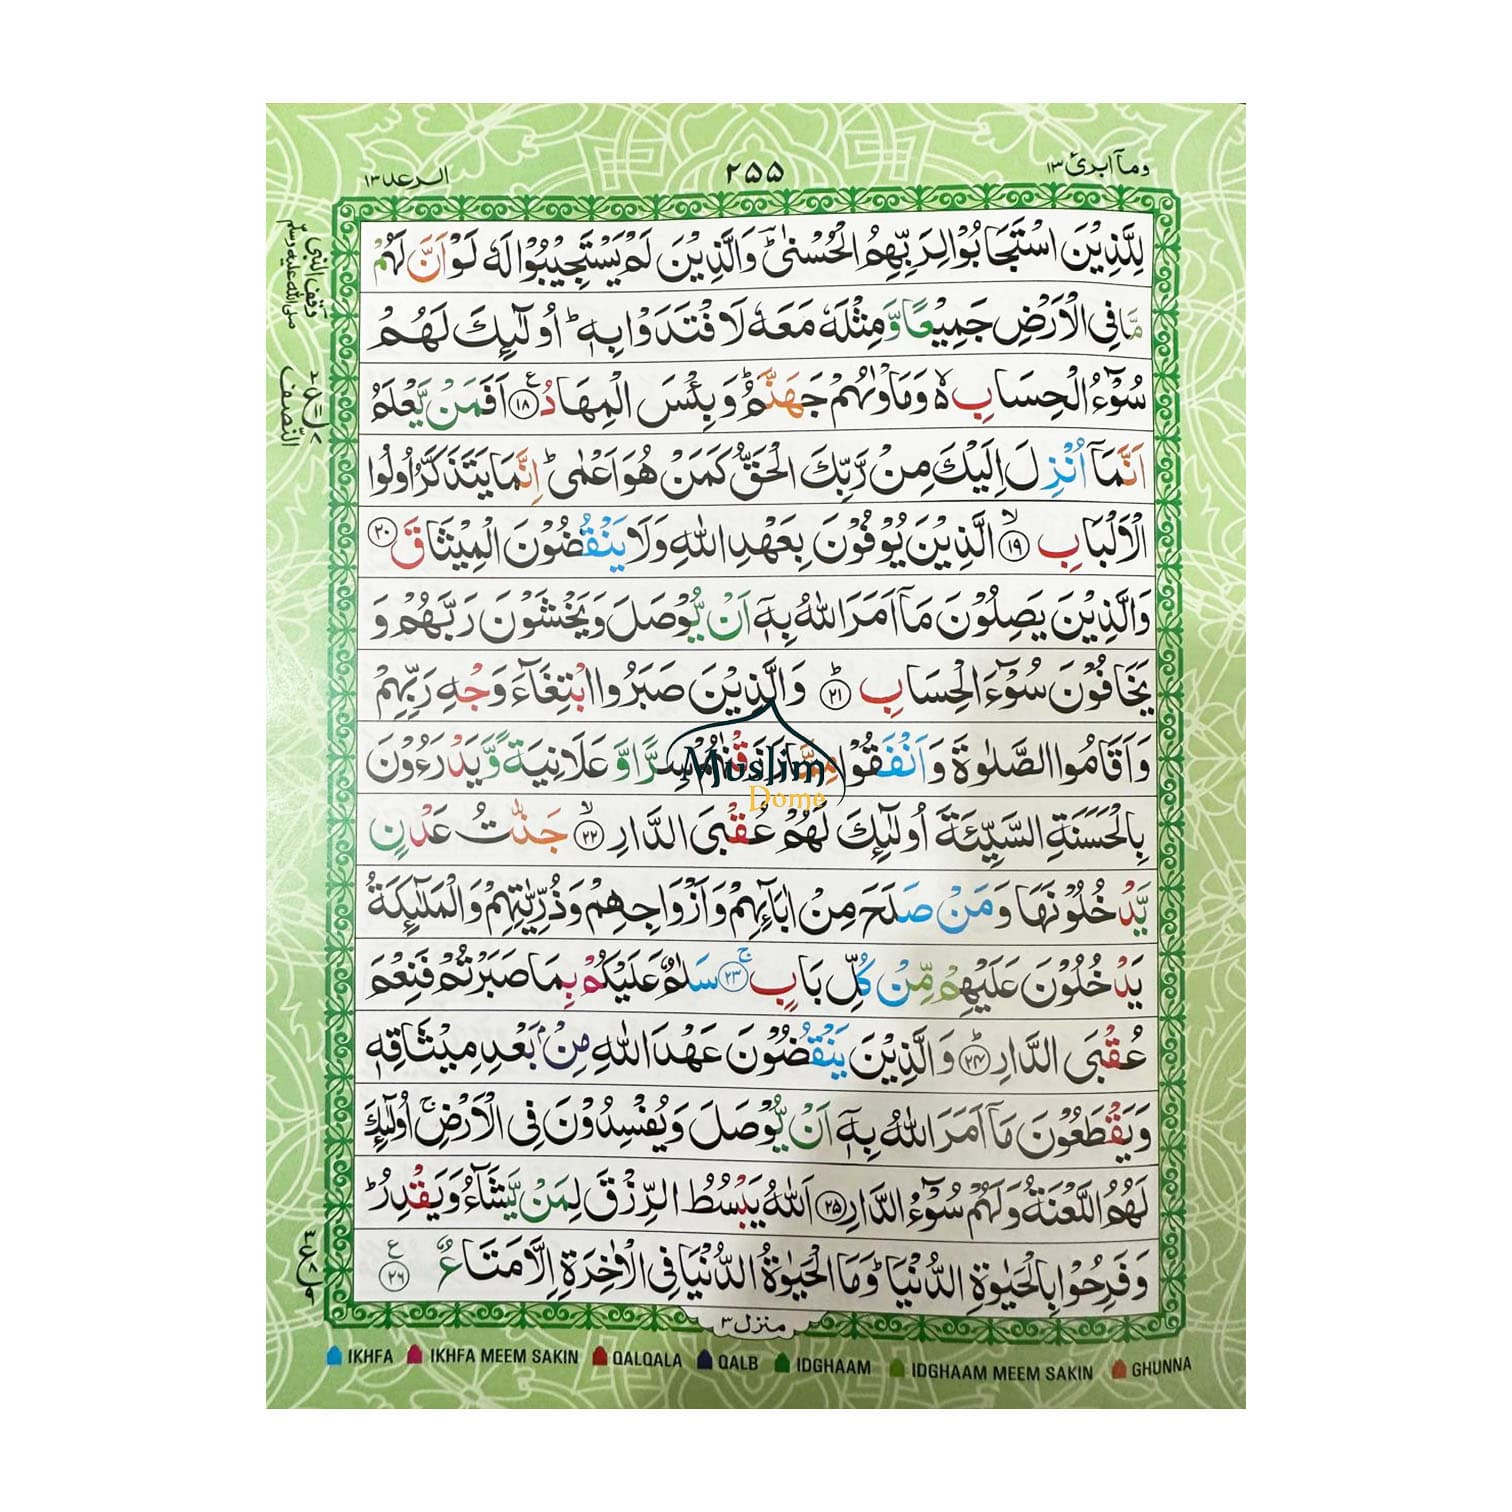 وماۤ ابرئ ١٣
٢٥٥
الرعد ١٣
لِلَّذِيْنَ اسْتَجَابُوْا لِرَبِّهِمُ الْحُسْنٰىؕ وَالَّذِيْنَ لَمْ يَسْتَجِيْبُوْا لَهٗ لَوْ اَنَّ لَهُمْ
مَّا فِى الْاَرْضِ جَمِيْعًا وَّمِثْلَهٗ مَعَهٗ لَافْتَدَوْا بِهٖؕ اُولٰٓئِكَ لَهُمْ
سُوْٓءُ الْحِسَابِ ۙ۬ وَمَاْوٰىهُمْ جَهَنَّمُؕ وَبِئْسَ الْمِهَادُ ؑ ﴿١٨﴾ اَفَمَنْ يَّعْلَمُ
اَنَّمَاۤ اُنْزِلَ اِلَيْكَ مِنْ رَّبِّكَ الْحَقُّ كَمَنْ هُوَ اَعْمٰىؕ اِنَّمَا يَتَذَكَّرُ اُولُوا
الْاَلْبَابِ ۙ ﴿١٩﴾ الَّذِيْنَ يُوْفُوْنَ بِعَهْدِ اللّٰهِ وَلَا يَنْقُضُوْنَ الْمِيْثَاقَ ۙ ﴿٢٠﴾
وَالَّذِيْنَ يَصِلُوْنَ مَاۤ اَمَرَ اللّٰهُ بِهٖۤ اَنْ يُّوْصَلَ وَيَخْشَوْنَ رَبَّهُمْ وَ
يَخَافُوْنَ سُوْٓءَ الْحِسَابِ ؕ ﴿٢١﴾ وَالَّذِيْنَ صَبَرُوا ابْتِغَآءَ وَجْهِ رَبِّهِمْ
وَاَقَامُوا الصَّلٰوةَ وَاَنْفَقُوْا مِمَّا رَزَقْنٰهُمْ سِرًّا وَّعَلَانِيَةً وَّيَدْرَءُوْنَ
بِالْحَسَنَةِ السَّيِّئَةَ اُولٰٓئِكَ لَهُمْ عُقْبَى الدَّارِ ۙ ﴿٢٢﴾ جَنّٰتُ عَدْنٍ
يَّدْخُلُوْنَهَا وَمَنْ صَلَحَ مِنْ اٰبَآئِهِمْ وَاَزْوَاجِهِمْ وَذُرِّيّٰتِهِمْ وَالْمَلٰٓئِكَةُ
يَدْخُلُوْنَ عَلَيْهِمْ مِّنْ كُلِّ بَابٍ ۚ ﴿٢٣﴾ سَلٰمٌ عَلَيْكُمْ بِمَا صَبَرْتُمْ فَنِعْمَ
عُقْبَى الدَّارِ ؕ ﴿٢٤﴾ وَالَّذِيْنَ يَنْقُضُوْنَ عَهْدَ اللّٰهِ مِنْۢ بَعْدِ مِيْثَاقِهٖ
وَيَقْطَعُوْنَ مَاۤ اَمَرَ اللّٰهُ بِهٖۤ اَنْ يُّوْصَلَ وَيُفْسِدُوْنَ فِى الْاَرْضِۚ اُولٰٓئِكَ
لَهُمُ اللَّعْنَةُ وَلَهُمْ سُوْٓءُ الدَّارِ ﴿٢٥﴾ اَللّٰهُ يَبْسُطُ الرِّزْقَ لِمَنْ يَّشَآءُ وَيَقْدِرُؕ
وَفَرِحُوْا بِالْحَيٰوةِ الدُّنْيَاؕ وَمَا الْحَيٰوةُ الدُّنْيَا فِى الْاٰخِرَةِ اِلَّا مَتَاعٌ ؑ ﴿٢٦﴾
وقف النبى
صلى الله عليه وسلم
النصف
Muslim
Dome
منزل ٣
IKHFA IKHFA MEEM SAKIN QALQALA QALB IDGHAAM IDGHAAM MEEM SAKIN GHUNNA